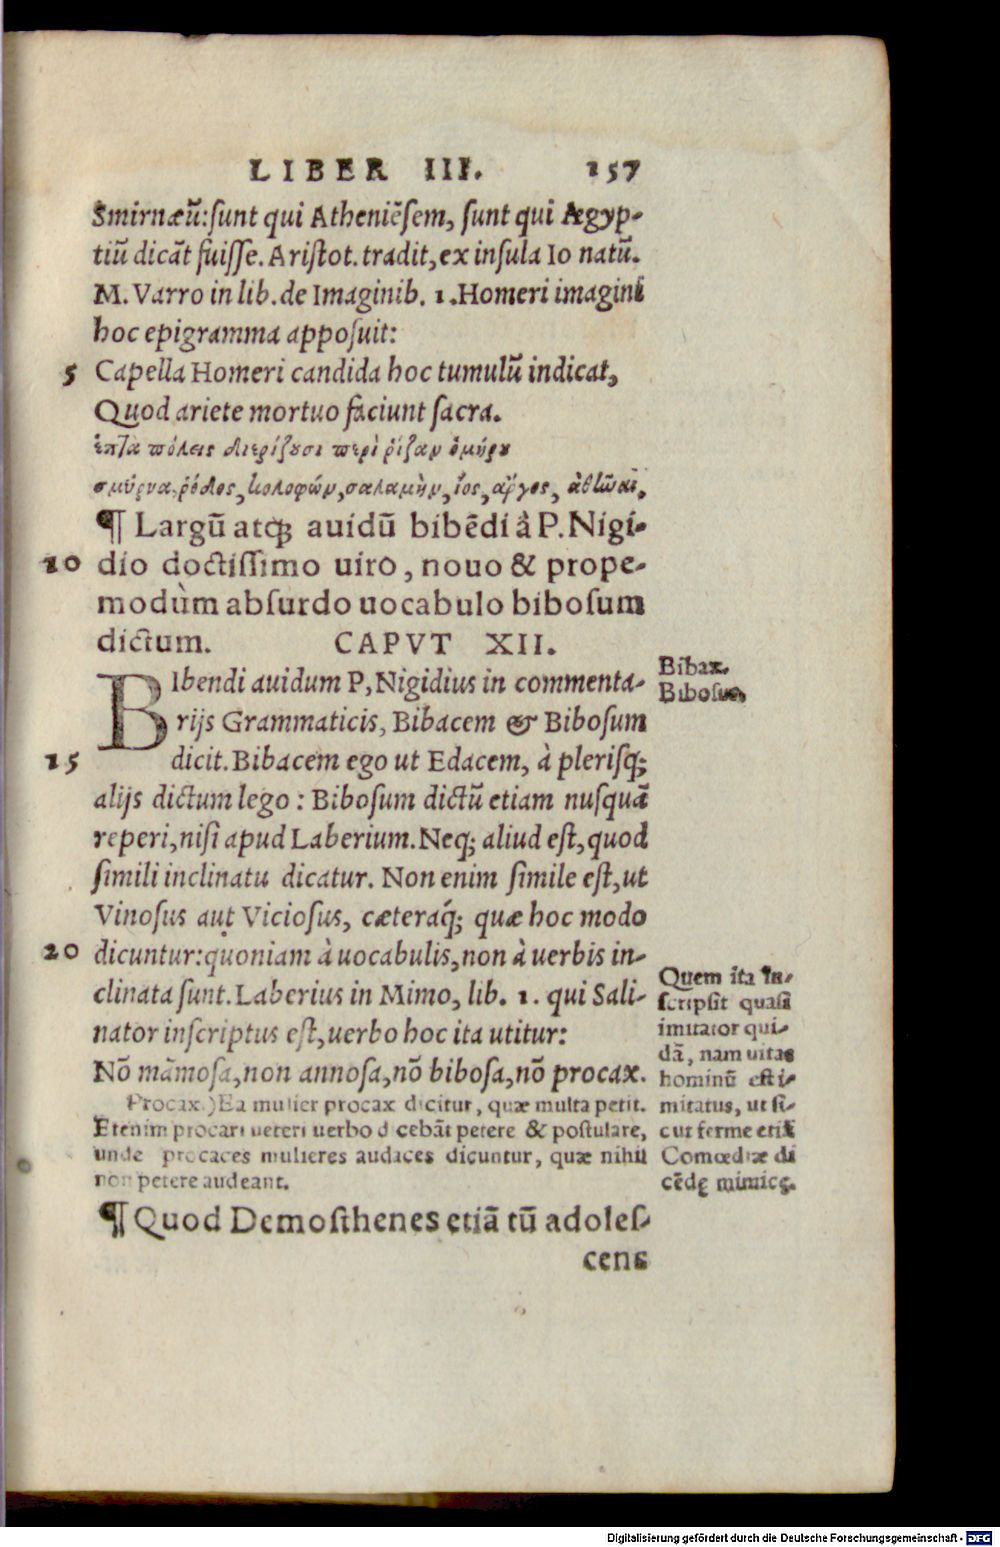 LIBER III. 157
Smirnæū: sunt qui Atheniēsem, sunt qui Aegyp-
tiū dicāt fuisse. Aristot. tradit, ex insula Io natū.
M. Varro in lib. de Imaginib. 1. Homeri imagini
hoc epigramma apposuit:
5 Capella Homeri candida hoc tumulū indicat,
Quod ariete mortuo faciunt sacra.
ἑπτὰ πόλεις διερίζουσι περὶ ῥίζαν ὁμήρου
σμύρνα, ῥόδος, κολοφών, σαλαμὴν, ἴος, ἄργος, ἀθῆναι.
¶ Largū atq; auidū bibēdi à P. Nigi-
10 dio doctissimo uiro, nouo & prope-
modùm absurdo uocabulo bibosum
dictum. CAPVT XII.
BIbendi auidum P, Nigidius in commenta-
rijs Grammaticis, Bibacem & Bibosum
15 dicit. Bibacem ego ut Edacem, à plerisq;
alijs dictum lego: Bibosum dictū etiam nusquā
reperi, nisi apud Laberium. Neq; aliud est, quod
simili inclinatu dicatur. Non enim simile est, ut
Vinosus aut Viciosus, cæteraq́; quæ hoc modo
20 dicuntur: quoniam à uocabulis, non à uerbis in-
clinata sunt. Laberius in Mimo, lib. 1. qui Sali-
nator inscriptus est, uerbo hoc ita utitur:
Nō māmosa, non annosa, nō bibosa, nō procax.
Procax.) Ea mulier procax dicitur, quæ multa petit.
Etenim procari ueteri uerbo dicebāt petere & postulare,
unde procaces mulieres audaces dicuntur, quæ nihil
non petere audeant.
¶ Quod Demosthenes etiā tū adoles-
cens
Bibax.
Bibosus.
Quem ita in-
scripsit quasi
imitator qui-
dā, nam uitas
hominū est i-
mitatus, ut si-
cut ferme etiā
Comœdiæ di
cēdę mimicę.
Digitalisierung gefördert durch die Deutsche Forschungsgemeinschaft - DFG